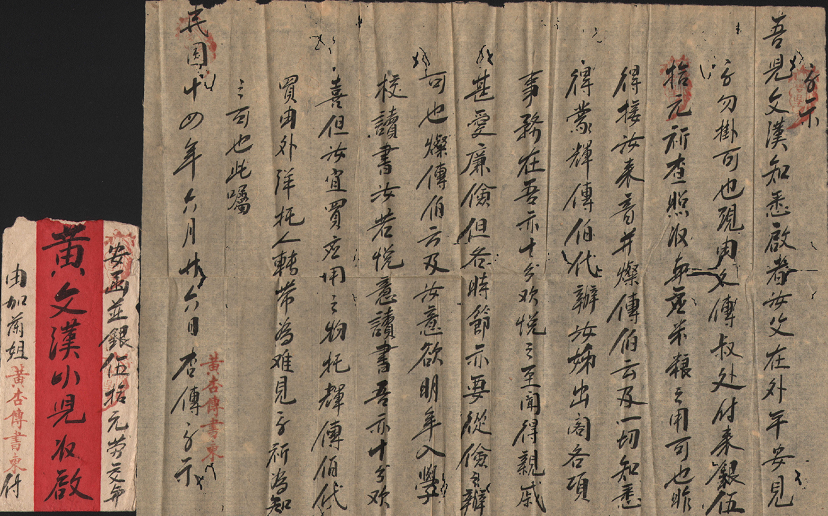 字示
吾兒文漢知悉啟者女父在外平安見
字勿掛可也現由文傳叔处付來銀伍
拾元祈查照收車並米糧之用可也昨
得接汝來音并燦傳伯云及一切知悉
得蒙輝傳伯代辦汝姊出閣各項
事務在吾亦十分欢悅之至聞得親戚
甚愛廉儉但各時節亦要從儉辦
可也燦傳伯云及汝意欲明年入學
校讀書汝若悅意讀書吾亦十分欢
喜但汝宜買应用之物托輝傳伯代
買由外洋托人轉带為难見字祈為知
之可也此囑
民国十四年六月廿六日 杏傳字示
黃杏傳書柬
安函並銀伍拾元勞交
黃文漢小兒收啟
由加
姐
黃杏傳書柬
付